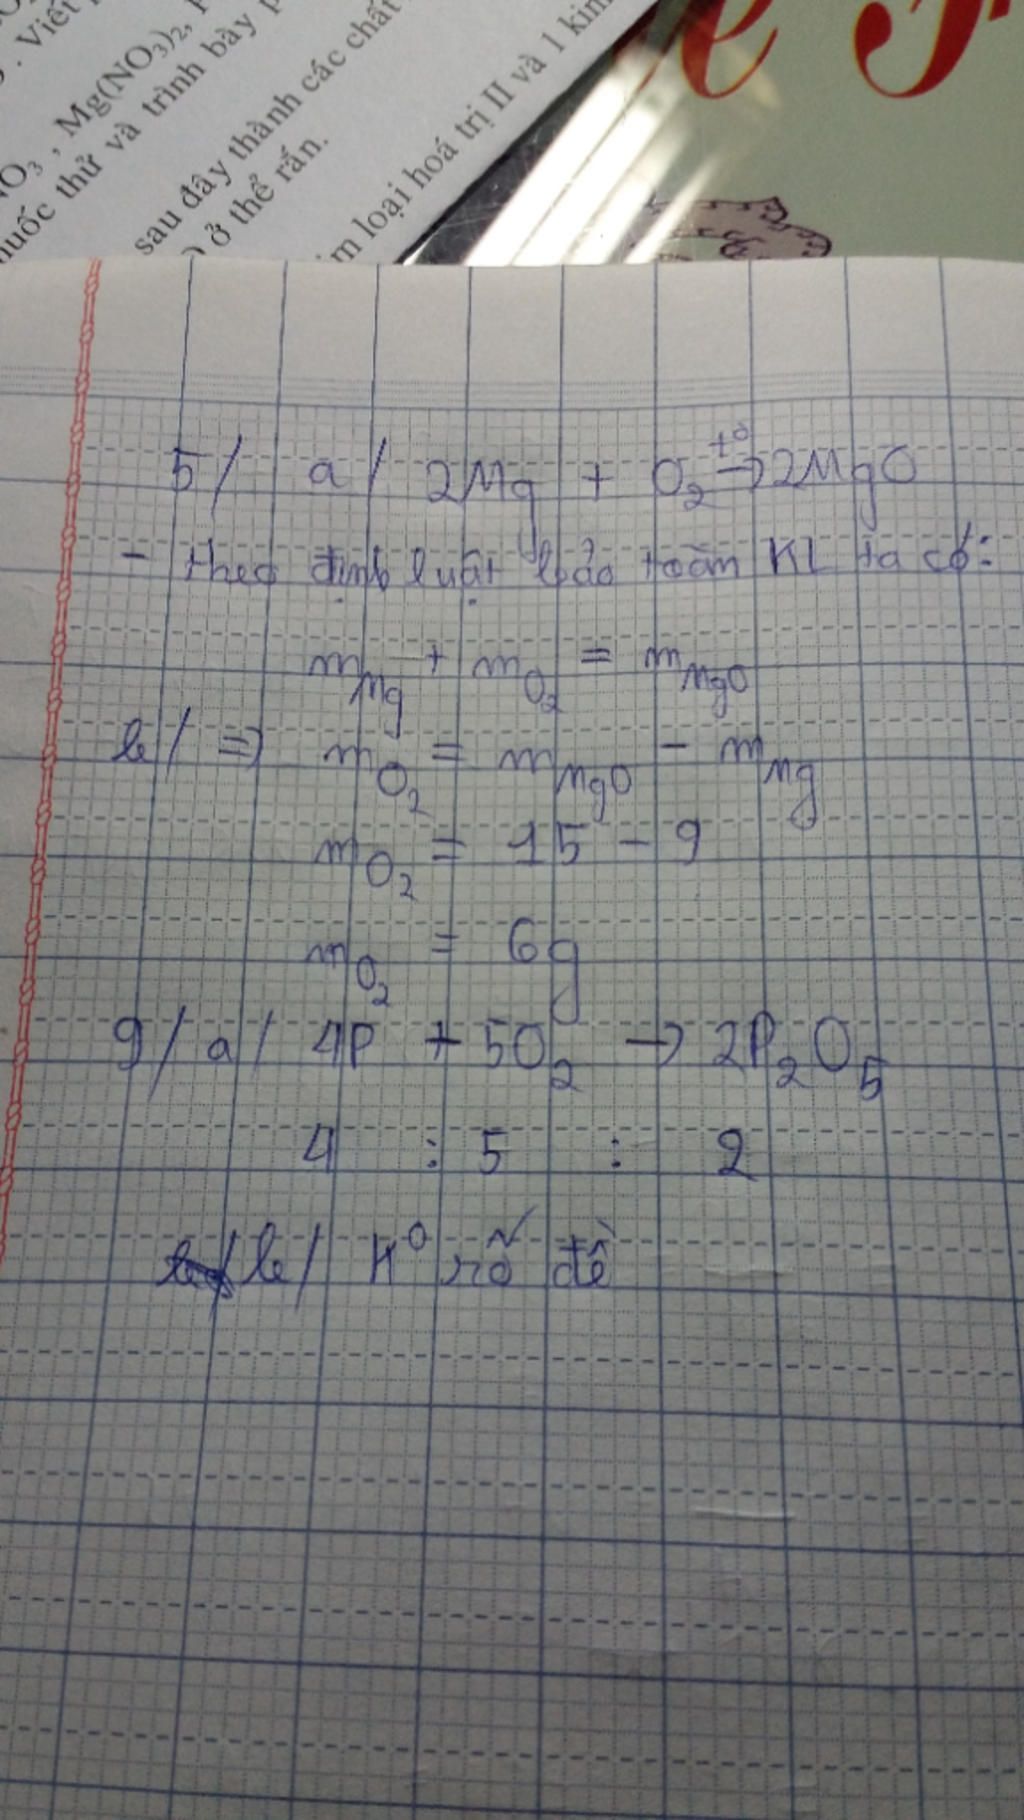 . Viết
NO₃ , Mg(NO₃)₂,
huốc thử và trình bày
sau đây thành các chất
) ở thể rắn.
im loại hoá trị II và 1 kim
5/ a/ 2Mg + O₂ →(t⁰) 2MgO
- theo định luật bảo toàn KL ta có:
m_Mg + m_O₂ = m_MgO
b/ ⇒ m_O₂ = m_MgO - m_Mg
m_O₂ = 15 - 9
m_O₂ = 6g
9/ a/ 4P + 5O₂ → 2P₂O₅
4 : 5 : 2
b/ K⁰ rõ đề